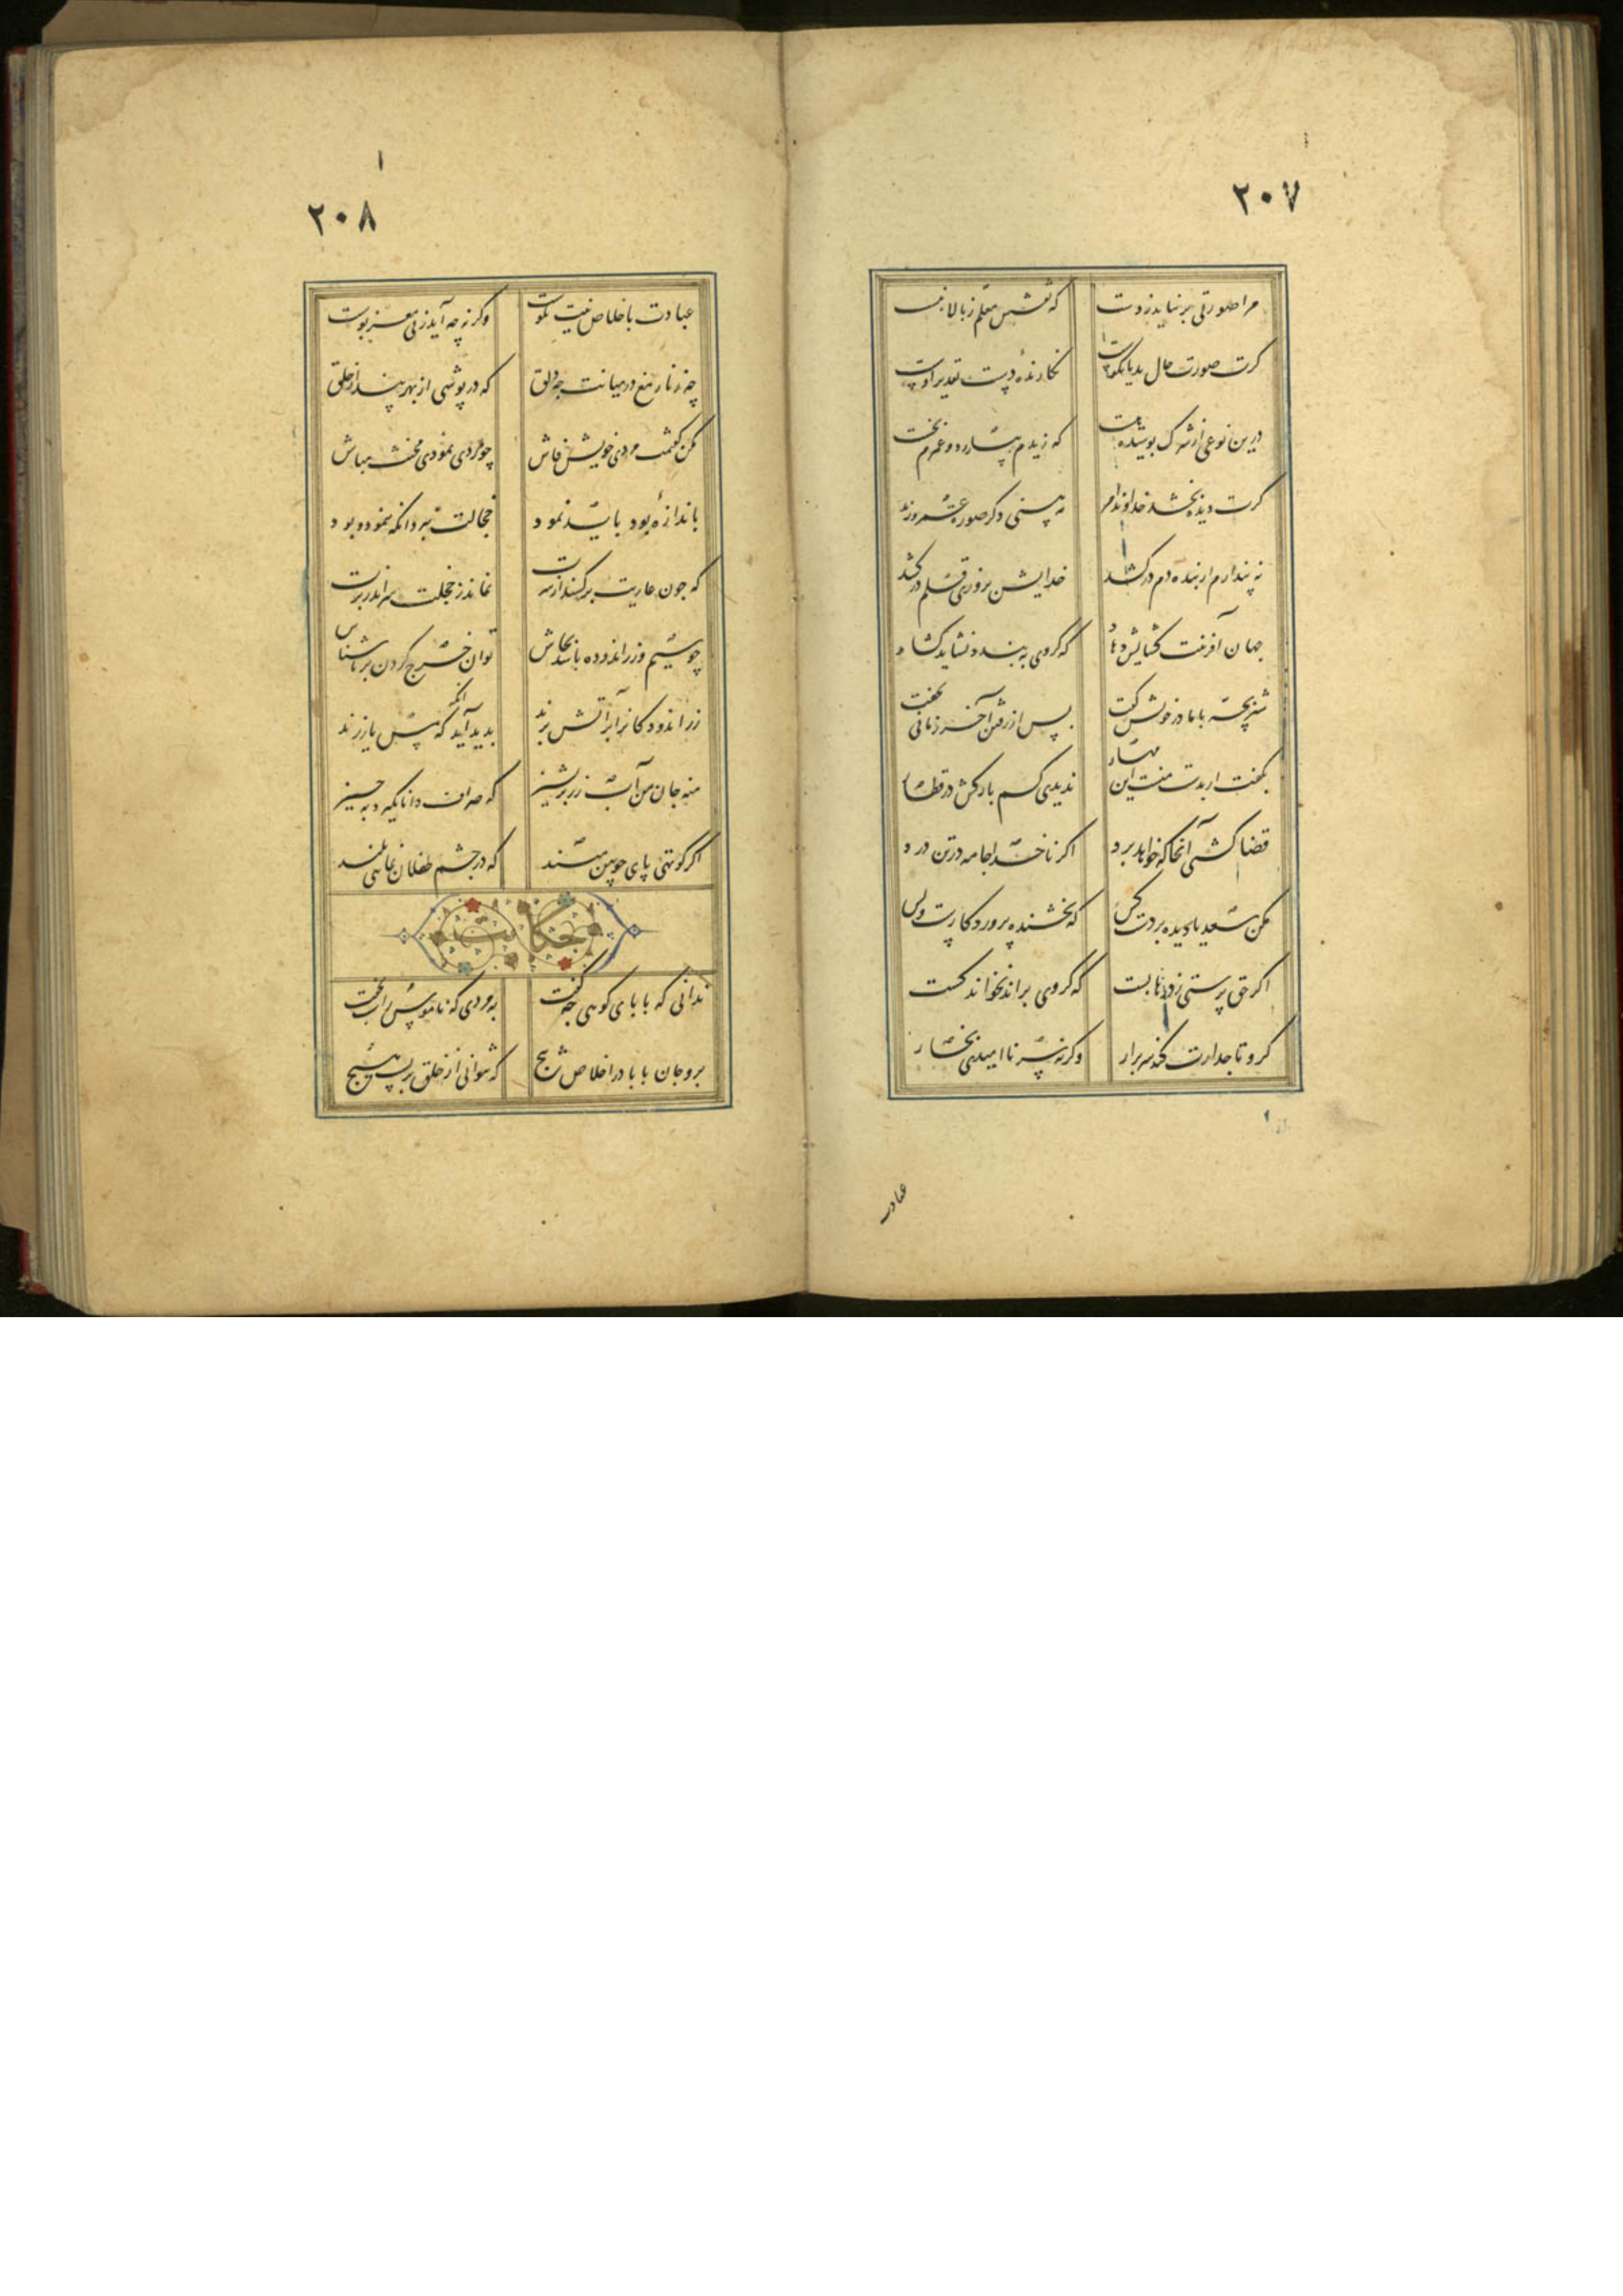 ۲۰۷
مرا صورتی برنیاید ز دست
که نقشش معلم ز بالا نبست
کرت صورت حال بد یا نکوست
نگارنده دست تقدیر اوست
درین نوعی از شرک پوشیده هست
که زیدم بیازرد و عمرم بخست
کرت دیده بخشد خداوند امر
نه بینی دکر صورت عمرو زید
نه پندارم ار بنده دم در کشد
خدایش بروزی قلم در کشد
جهان آفرینت کشایش دهاد
که کروی به بندد نشاید کشاد
شتر بچه با مادر خویش کفت
بس از رفتن آخر زمانی بخفت
بکفت ار بدست منستی مهار
ندیدی کسم بارکش در قطار
قضا کشتی آنجا که خواهد برد
اکر ناخدا جامه در تن درد
مکن سعدیا دیده بر دست کس
که بخشنده پروردکارست و بس
اکر حق پرستی ز درها بست
که کروی براند نخواند کست
کر او تاجدارت کند سر برار
وکرنه سر ناامیدی بخار
عبادت
۲۰۸
عبادت باخلاص نیت نکوست
وکرنه چه آید ز بی مغز پوست
چه زنار مغ در میانت چه دلق
که در پوشی از بهر پندار خلق
مکن کفتمت مردی خویش فاش
چو مردی نمودی مخنث مباش
باندازهٔ بود باید نمود
خجالت نبرد انکه ننمود و بود
که چون عاریت برکنند از سرت
نماند ز خجلت سر اندر برت
چو سیم و زر اندوده باشد نحاس
توان خرج کردن بر ناشناس
زر اندودکانرا بر آتش برند
بدید آید انکه که مس یا زرند
منه جان من آب زر بر پشیز
که صراف دانا نکیرد به چیز
اکر کوتهی پای چوبین مبند
که در چشم طفلان نمایی بلند
حکایت
ندانی که بابای کوهی چه کفت
بمردی که ناموس را شب نخفت
برو جان بابا در اخلاص پیچ
که نتوانی از خلق بر بست هیچ